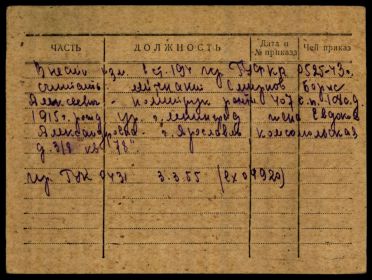 ЧАСТЬ ДОЛЖНОСТЬ Дата и № приказа Чей приказ
Внести изм. в ст. 194 пр ГУФКА 0525-43г.
считать лейтнант Смирнов Борис
Алексеевич - политрук роты 407 с.п. 108 с.д.
1915 г. рожд ур. г. Ленинград жена Евдокия
Александровна - г. Ярославль Комсомольская
д. 3/8 кв. 78
пр. ГУК 0431 3.3.55 (вх 09920)